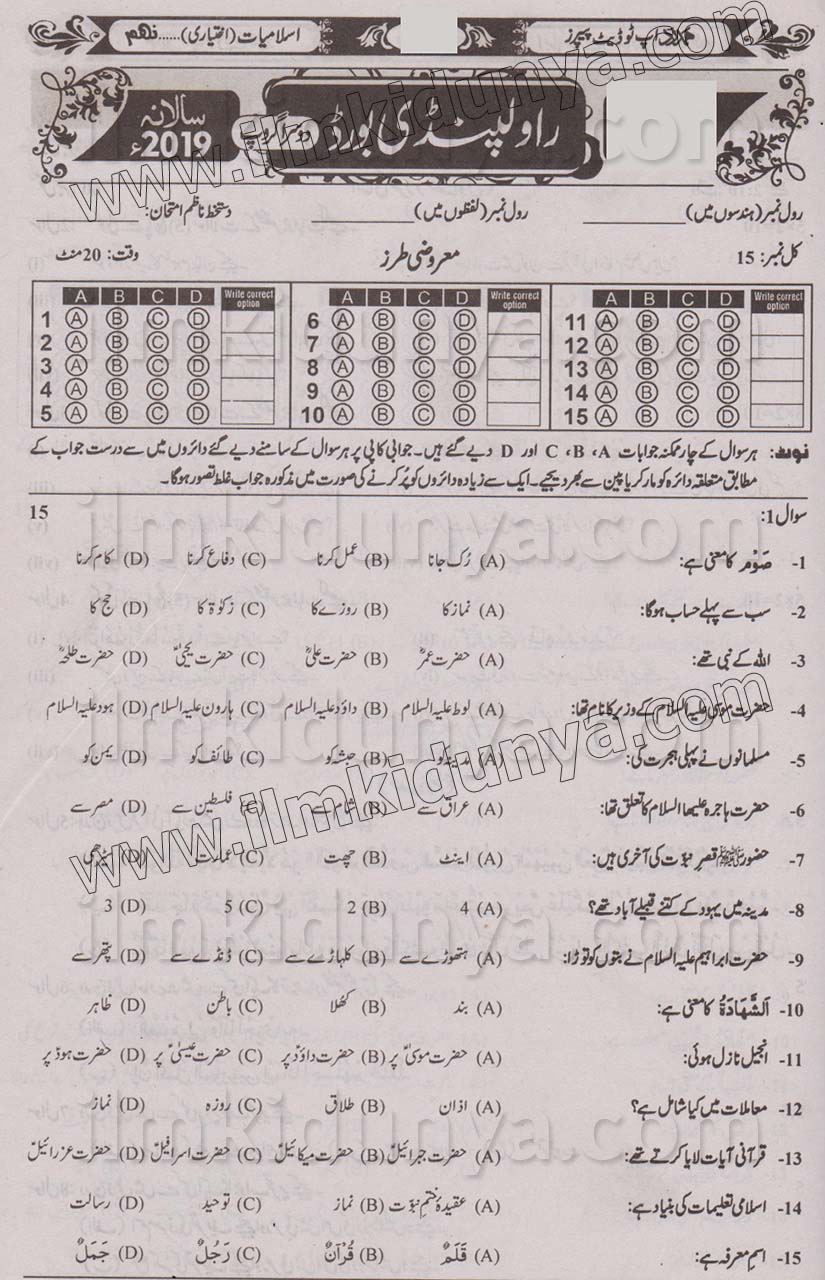 اسلامیات (اختیاری)......نہم
اپ ٹو ڈیٹ پیپرز
راولپنڈی بورڈ دوسرا گروپ
سالانہ 2019ء
رول نمبر (ہندسوں میں) ____ رول نمبر (لفظوں میں) ____ دستخط ناظم امتحان: ____
کل نمبر: 15 معروضی طرز وقت: 20 منٹ
A B C D Write correct option A B C D Write correct option A B C D Write correct option
1 A B C D 6 A B C D 11 A B C D
2 A B C D 7 A B C D 12 A B C D
3 A B C D 8 A B C D 13 A B C D
4 A B C D 9 A B C D 14 A B C D
5 A B C D 10 A B C D 15 A B C D
نوٹ: ہر سوال کے چار ممکنہ جوابات A، B، C اور D دیے گئے ہیں۔ جوابی کاپی پر ہر سوال کے سامنے دیے گئے دائروں میں سے درست جواب کے
مطابق متعلقہ دائرہ کو مارکر یا پین سے بھر دیجیے۔ ایک سے زیادہ دائروں کو پُر کرنے کی صورت میں مذکورہ جواب غلط تصور ہوگا۔
سوال 1: 15
1- صَوْم کا معنی ہے: (A) رُک جانا (B) عمل کرنا (C) دفاع کرنا (D) کام کرنا
2- سب سے پہلے حساب ہوگا: (A) نماز کا (B) روزے کا (C) زکوٰۃ کا (D) حج کا
3- اللہ کے نبی تھے: (A) حضرت عمرؓ (B) حضرت علیؓ (C) حضرت یحییٰؑ (D) حضرت طلحہؓ
4- حضرت موسیٰ علیہ السلام کے وزیر کا نام تھا: (A) لوط علیہ السلام (B) داؤد علیہ السلام (C) ہارون علیہ السلام (D) ہود علیہ السلام
5- مسلمانوں نے پہلی ہجرت کی: (A) مدینہ کو (B) حبشہ کو (C) طائف کو (D) یمن کو
6- حضرت ہاجرہ علیھا السلام کا تعلق تھا: (A) عراق سے (B) شام سے (C) فلسطین سے (D) مصر سے
7- حضور ﷺ قصرِ نبوّت کی آخری ہیں: (A) اینٹ (B) چھت (C) عمارت (D) سیڑھی
8- مدینہ میں یہود کے کتنے قبیلے آباد تھے؟ (A) 4 (B) 2 (C) 5 (D) 3
9- حضرت ابراہیم علیہ السلام نے بتوں کو توڑا: (A) ہتھوڑے سے (B) کلہاڑے سے (C) ڈنڈے سے (D) پتھر سے
10- اَلشَّھَادَۃُ کا معنی ہے: (A) بند (B) کُھلا (C) باطن (D) ظاہر
11- انجیل نازل ہوئی: (A) حضرت موسیٰؑ پر (B) حضرت داؤدؑ پر (C) حضرت عیسیٰؑ پر (D) حضرت ہودؑ پر
12- معاملات میں کیا شامل ہے؟ (A) اذان (B) طلاق (C) روزہ (D) نماز
13- قرآنی آیات لایا کرتے تھے: (A) حضرت جبرائیلؑ (B) حضرت میکائیلؑ (C) حضرت اسرافیلؑ (D) حضرت عزرائیلؑ
14- اسلامی تعلیمات کی بنیاد ہے: (A) عقیدۂ ختم نبوّت (B) نماز (C) توحید (D) رسالت
15- اسم معرفہ ہے: (A) قَلَمٌ (B) قُرْآنٌ (C) رَجُلٌ (D) جَمَلٌ
www.ilmkidunya.com
www.ilmkidunya.com
ilmkidunya.com
ilmkidunya.com
ilmkidunya.com
ilmkidunya.com
ilmkidunya.com
ilmkidunya.com